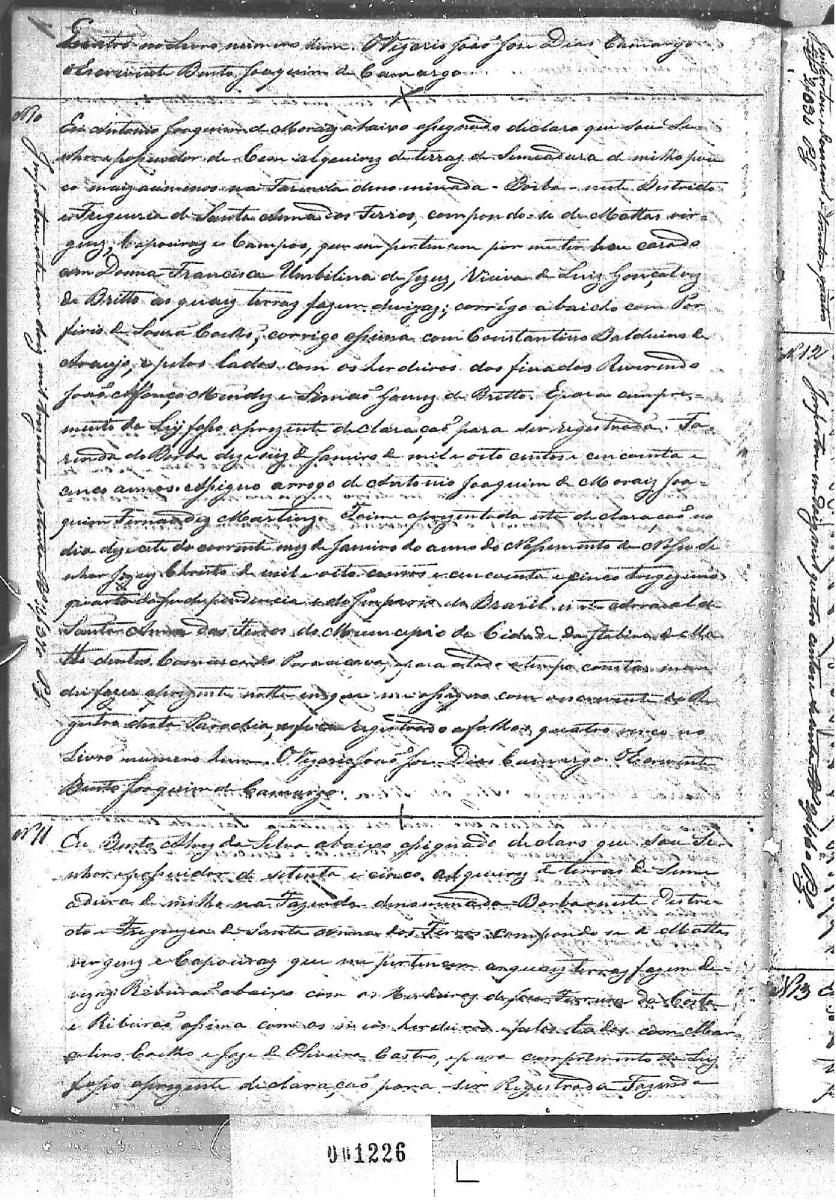 quatro no Livro numero hum. O Vigario João Jose Dias Camargo
o Escrivente Bento Joaquim de Camargo
N 10
Eu Antonio Joaquim de Moraz abaixo assignado declaro que sou Se
nhor e possuidor de Cem alqueiroz de terraz de Semeadura de milho pou
co maiz aumenos na Fazenda denominada - Borba - neste Districto
e Freguezia de Santa Anna dos Ferros, compondo-se de Mattas vir-
genz, Capoeiraz e Campos, que me pertencem por meter heu cazado
com Donna Francisca Umbilina de Jezuz, Viuva de Luiz Gonçalvez
de Britto as quaiz terraz fazem devizaz; corrigo abaicho com Por
firio de Souza Coelho, corrigo assima com Constantino Balduino de
Araujo, e pelos lados com os herdeiros dos finados Reverendo
João Affonço Mendez e Simião Gomez de Britto. E para cumpre-
mento da Ley fasso aprezente declaração para ser registrada. Fa-
zenda do Borba dezeseiz de Janeiro de mil e oito centos e cincoenta e
cinco annos. Assigno arrogo de Antonio Joaquim de Moraiz Joa-
quim Fernandez Martinz. Foime aprezentada esta declaração no
dia dezesete do corrente mez de Janeiro do anno do Nassemento de Nosso Se
nhor Jezuz Christo de mil e oito centos e cincoenta e cinco trigezimo
quarto da Independencia e do Imperio do Brazil neste Arraial de
Santa Anna dos Ferros do Municipio da Cidade da Itabira de Ma
tto dentro Comarca do Peracicava, e para atodo otempo constar man
dei fazer aprezente notta emque me assigno com o escrevente do Re
gistro desta Parochia, e fica registrado afolhas quatro verço no
Livro numero hum. O Vigario João Jose Dias Camargo O Escrevente
Bento Joaquim de Camargo.
N 11
Eu Bento Alvez da Silva abaixo assignado declaro que sou Se-
nhor e possuidor de setenta e cinco alqueirez de terras de Seme
adura de milho na Fazenda denominada - Borba neste Destri
cto e Freguezia de Santa Anna dos Ferros compondo-se de Mattas
virgenz e Capoeiraz que me pertencem asquaiz terraz fazem de-
vizaz Ribeirão abaixo com os Herdeiros de Ferreira da Costa
e Ribeirão assima com os meos herdeiros e pelos lados com Mar
celino Coelho e Joze de Oliveira Castro, e para cumpremento da Ley
fasso aprezente declaração para ser Registrada Fazenda
N 12
N 13
001226